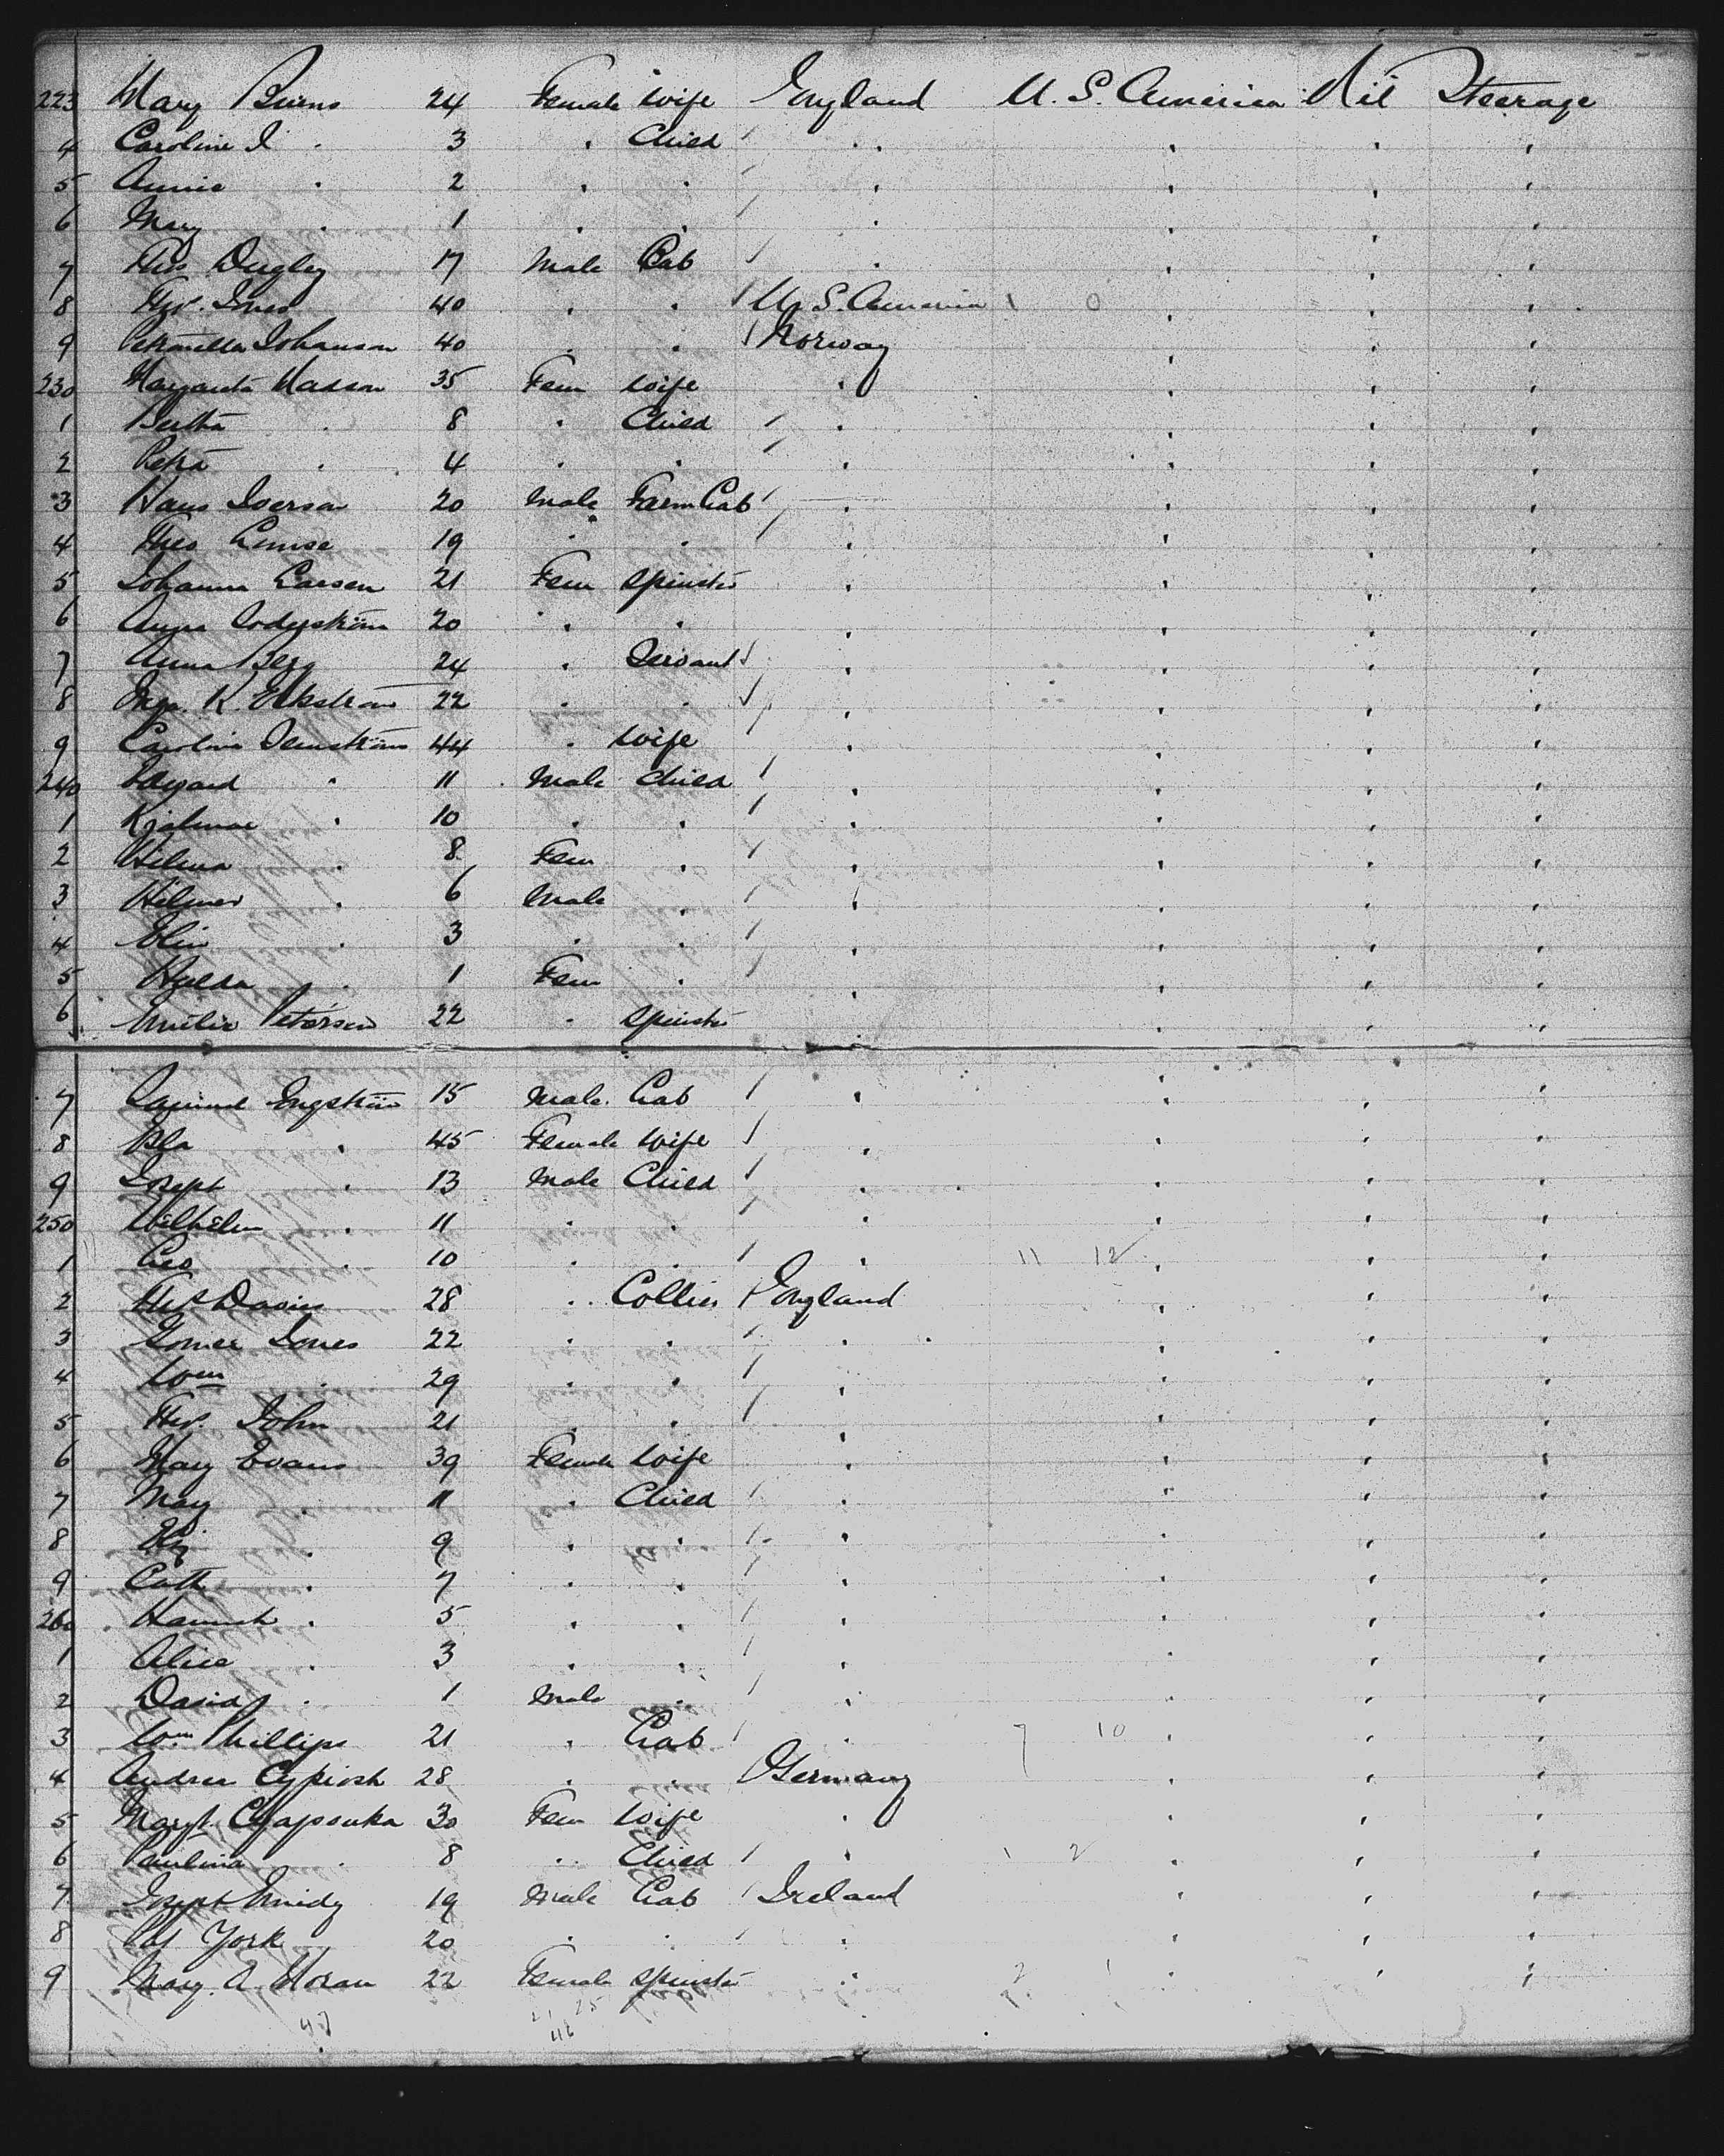 223 Mary Burns 24 Female Wife England U. S. America Nil Steerage
4 Caroline I " 3 " Child " " " "
5 Annie " 2 " " " " " "
6 Mary " 1 " " " " " "
7 Thos Degley 17 Male Lab " " " "
8 Thos. Jones 40 " " U. S. America " " "
9 Petronella Johanson 40 " " Norway " " "
230 Margareta Madson 35 Fem Wife " " " "
1 Bertha " 8 " Child " " " "
2 Petra " 4 " " " " " "
3 Hans Iverson 20 Male Farm Lab " " " "
4 Theo 19 " " " " " "
5 Johanna Larsen 21 Fem Spinster " " " "
6 Anna Soderström 20 " " " " " "
7 Anna Berg 24 " Servant " " " "
8 Inga. K. Ekstrom 22 " " " " " "
9 Carolina 44 " Wife " " " "
240 Edward " 11 Male Child " " " "
1 Hjalmar " 10 " " " " " "
2 Hilma " 8 Fem " " " " "
3 Hilmer " 6 Male " " " " "
4 Elin " 3 " " " " " "
5 Hulda " 1 Fem " " " " "
6 Emilia Peterson 22 " Spinster " " " "
7 Samuel Engström 15 Male Lab " " " "
8 " 45 Female Wife " " " "
9 Joseph " 13 Male Child " " " "
250 Wilhelm " 11 " " " " " "
1 Geo " 10 " " " 11 12 " " "
2 Thos Davies 28 " Collier England " " "
3 Gomer Jones 22 " " " " " "
4 Wm " 29 " " " " " "
5 Thos. John 21 " " " " " "
6 Mary Evans 39 Female Wife " " " "
7 May " 11 " Child " " " "
8 Eliz " 9 " " " " " "
9 Cath " 7 " " " " " "
260 Hannah " 5 " " " " " "
1 Alice " 3 " " " " " "
2 David " 1 Male " " " " "
3 Wm Phillips 21 " Lab " 7 10 " " "
4 Andrew Cypiosh 28 " " Germany " " "
5 Margt. Czaposuka 30 Fem Wife " " " "
6 Paulina " 8 " Child " 1 2 " " "
7 Joseph 19 Male Lab Ireland " " "
8 York 20 " " " " " "
9 Mary A. Horan 22 Female Spinster " " " "
47 21 25
46